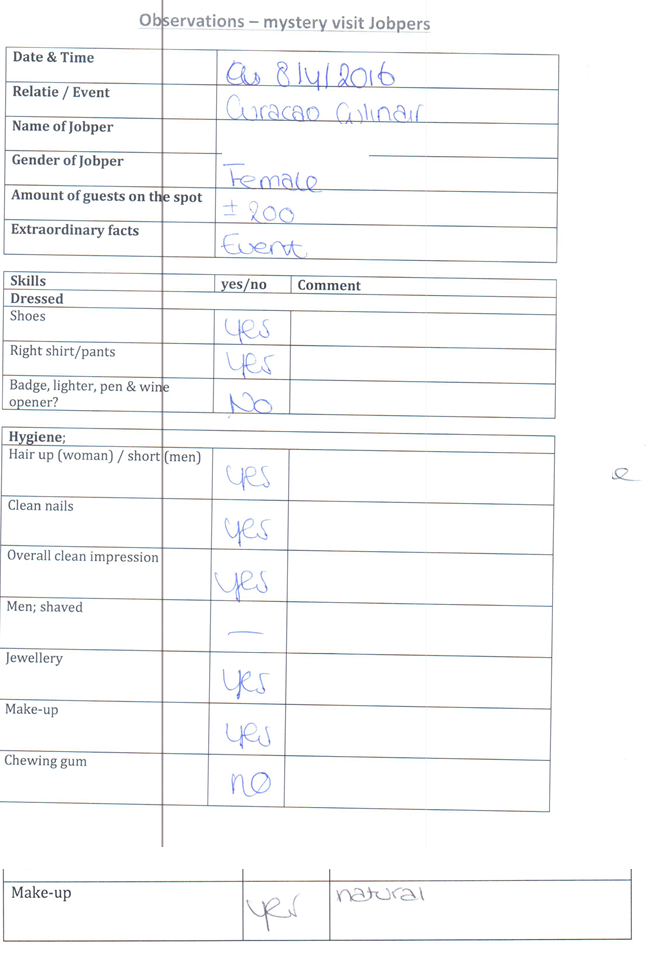 Observations – mystery visit Jobpers
Date & Time 8/4/2016
Relatie / Event Curacao Culinair
Name of Jobper
Gender of Jobper Female
Amount of guests on the spot ± 200
Extraordinary facts Event
Skills yes/no Comment
Dressed
Shoes yes
Right shirt/pants yes
Badge, lighter, pen & wine
opener? No
Hygiene;
Hair up (woman) / short (men) yes
Clean nails yes
Overall clean impression yes
Men; shaved —
Jewellery yes
Make-up yes
Chewing gum no
Make-up yes natural